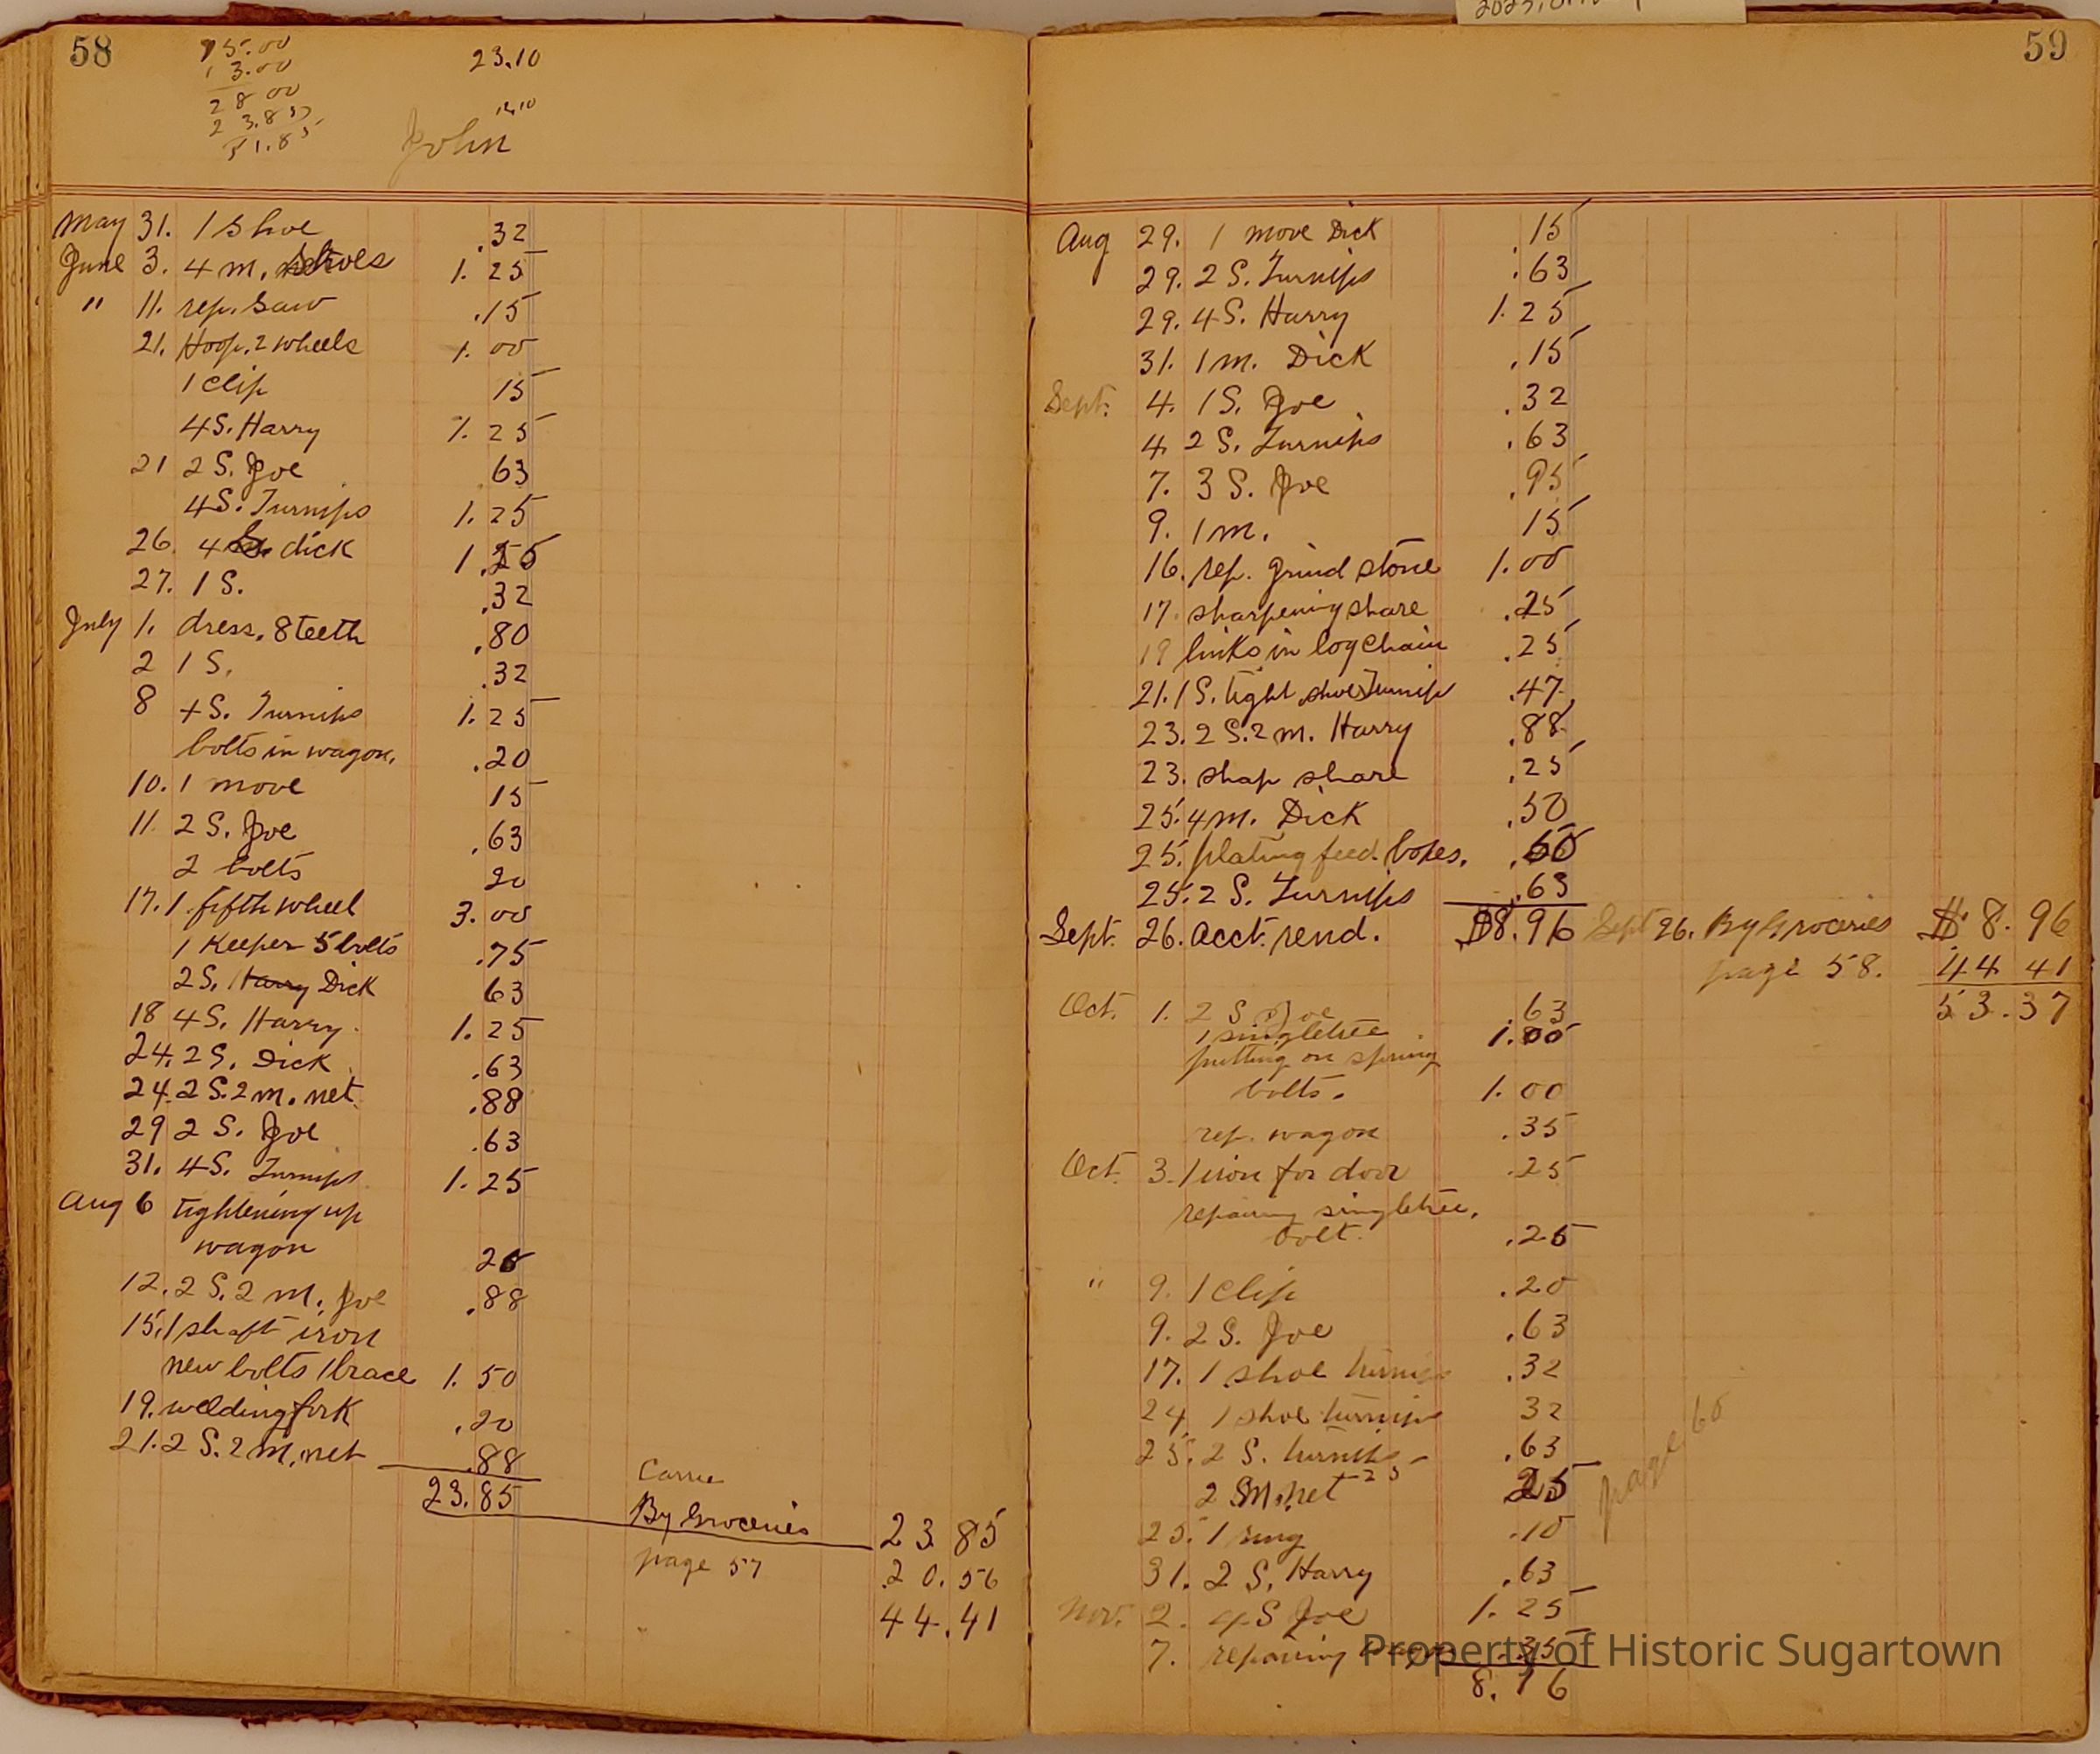 58
15.00
13.00
28 00
23.85
51.85
23.10
John
May 31. 1 Shoe .32
June 3. 4 m. Shoes 1.25
" 11. rep. Saw .15
21. Hoop. 2 wheels 1.00
1 Clip 15
4 S. Harry 1.25
21 2 S. Joe 63
4 S. Turnips 1.25
26. 4 S. dick 1.25
27. 1 S. .32
July 1. dress. 8 teeth .80
2 1 S. .32
8 4 S. Turnips 1.25
bolts in wagon. .20
10. 1 move 15
11. 2 S. Joe .63
2 bolts 20
17. 1 fifth wheel 3.00
1 Keeper 5 bolts .75
2 S. Harry Dick 63
18 4 S. Harry. 1.25
24. 2 S. Dick .63
24. 2 S. 2 m. net. .88
29 2 S. Joe .63
31. 4 S. Turnips 1.25
Aug 6 tightening up
wagon 25
12. 2 S. 2 m. Joe .88
15. 1 shaft iron
new bolts 1 brace 1.50
19. welding fork .20
21. 2 S. 2 m. net .88
23.85
Carrie
By Groceries 23 85
page 57 20.56
44.41
59
Aug 29. 1 move Dick .15
29. 2 S. Turnips .63
29. 4 S. Harry 1.25
31. 1 m. Dick .15
Sept. 4. 1 S. Joe .32
4. 2 S. Turnips .63
7. 3 S. Joe .95
9. 1 m. 15
16. rep. grind stone 1.00
17. sharpening share .25
19 links in log chain .25
21. 1 S. tight shoe Turnip .47
23. 2 S. 2 m. Harry .88
23. shap share .25
25. 4 m. Dick .50
25. plating feed boxes. .50
25. 2 S. Turnips .63
Sept. 26. acct. rend. $8.96 Sept 26. By Groceries $8.96
page 58. 44 41
53.37
Oct. 1. 2 S Joe .63
1 singletree 1.00
putting on spring
bolts. 1.00
rep. wagon .35
Oct. 3. 1 iron for door .25
repairing singletree.
bolt. .25
" 9. 1 Clip .20
9. 2 S. Joe .63
17. 1 shoe turnips .32
24 1 shoe turnips 32
25. 2 S. turnips .63
2 m. net 25 25
page 60
25. 1 ring .10
31. 2 S. Harry .63
Nov. 2. 4 S Joe 1.25
7. repairing .35
8.76
Property of Historic Sugartown